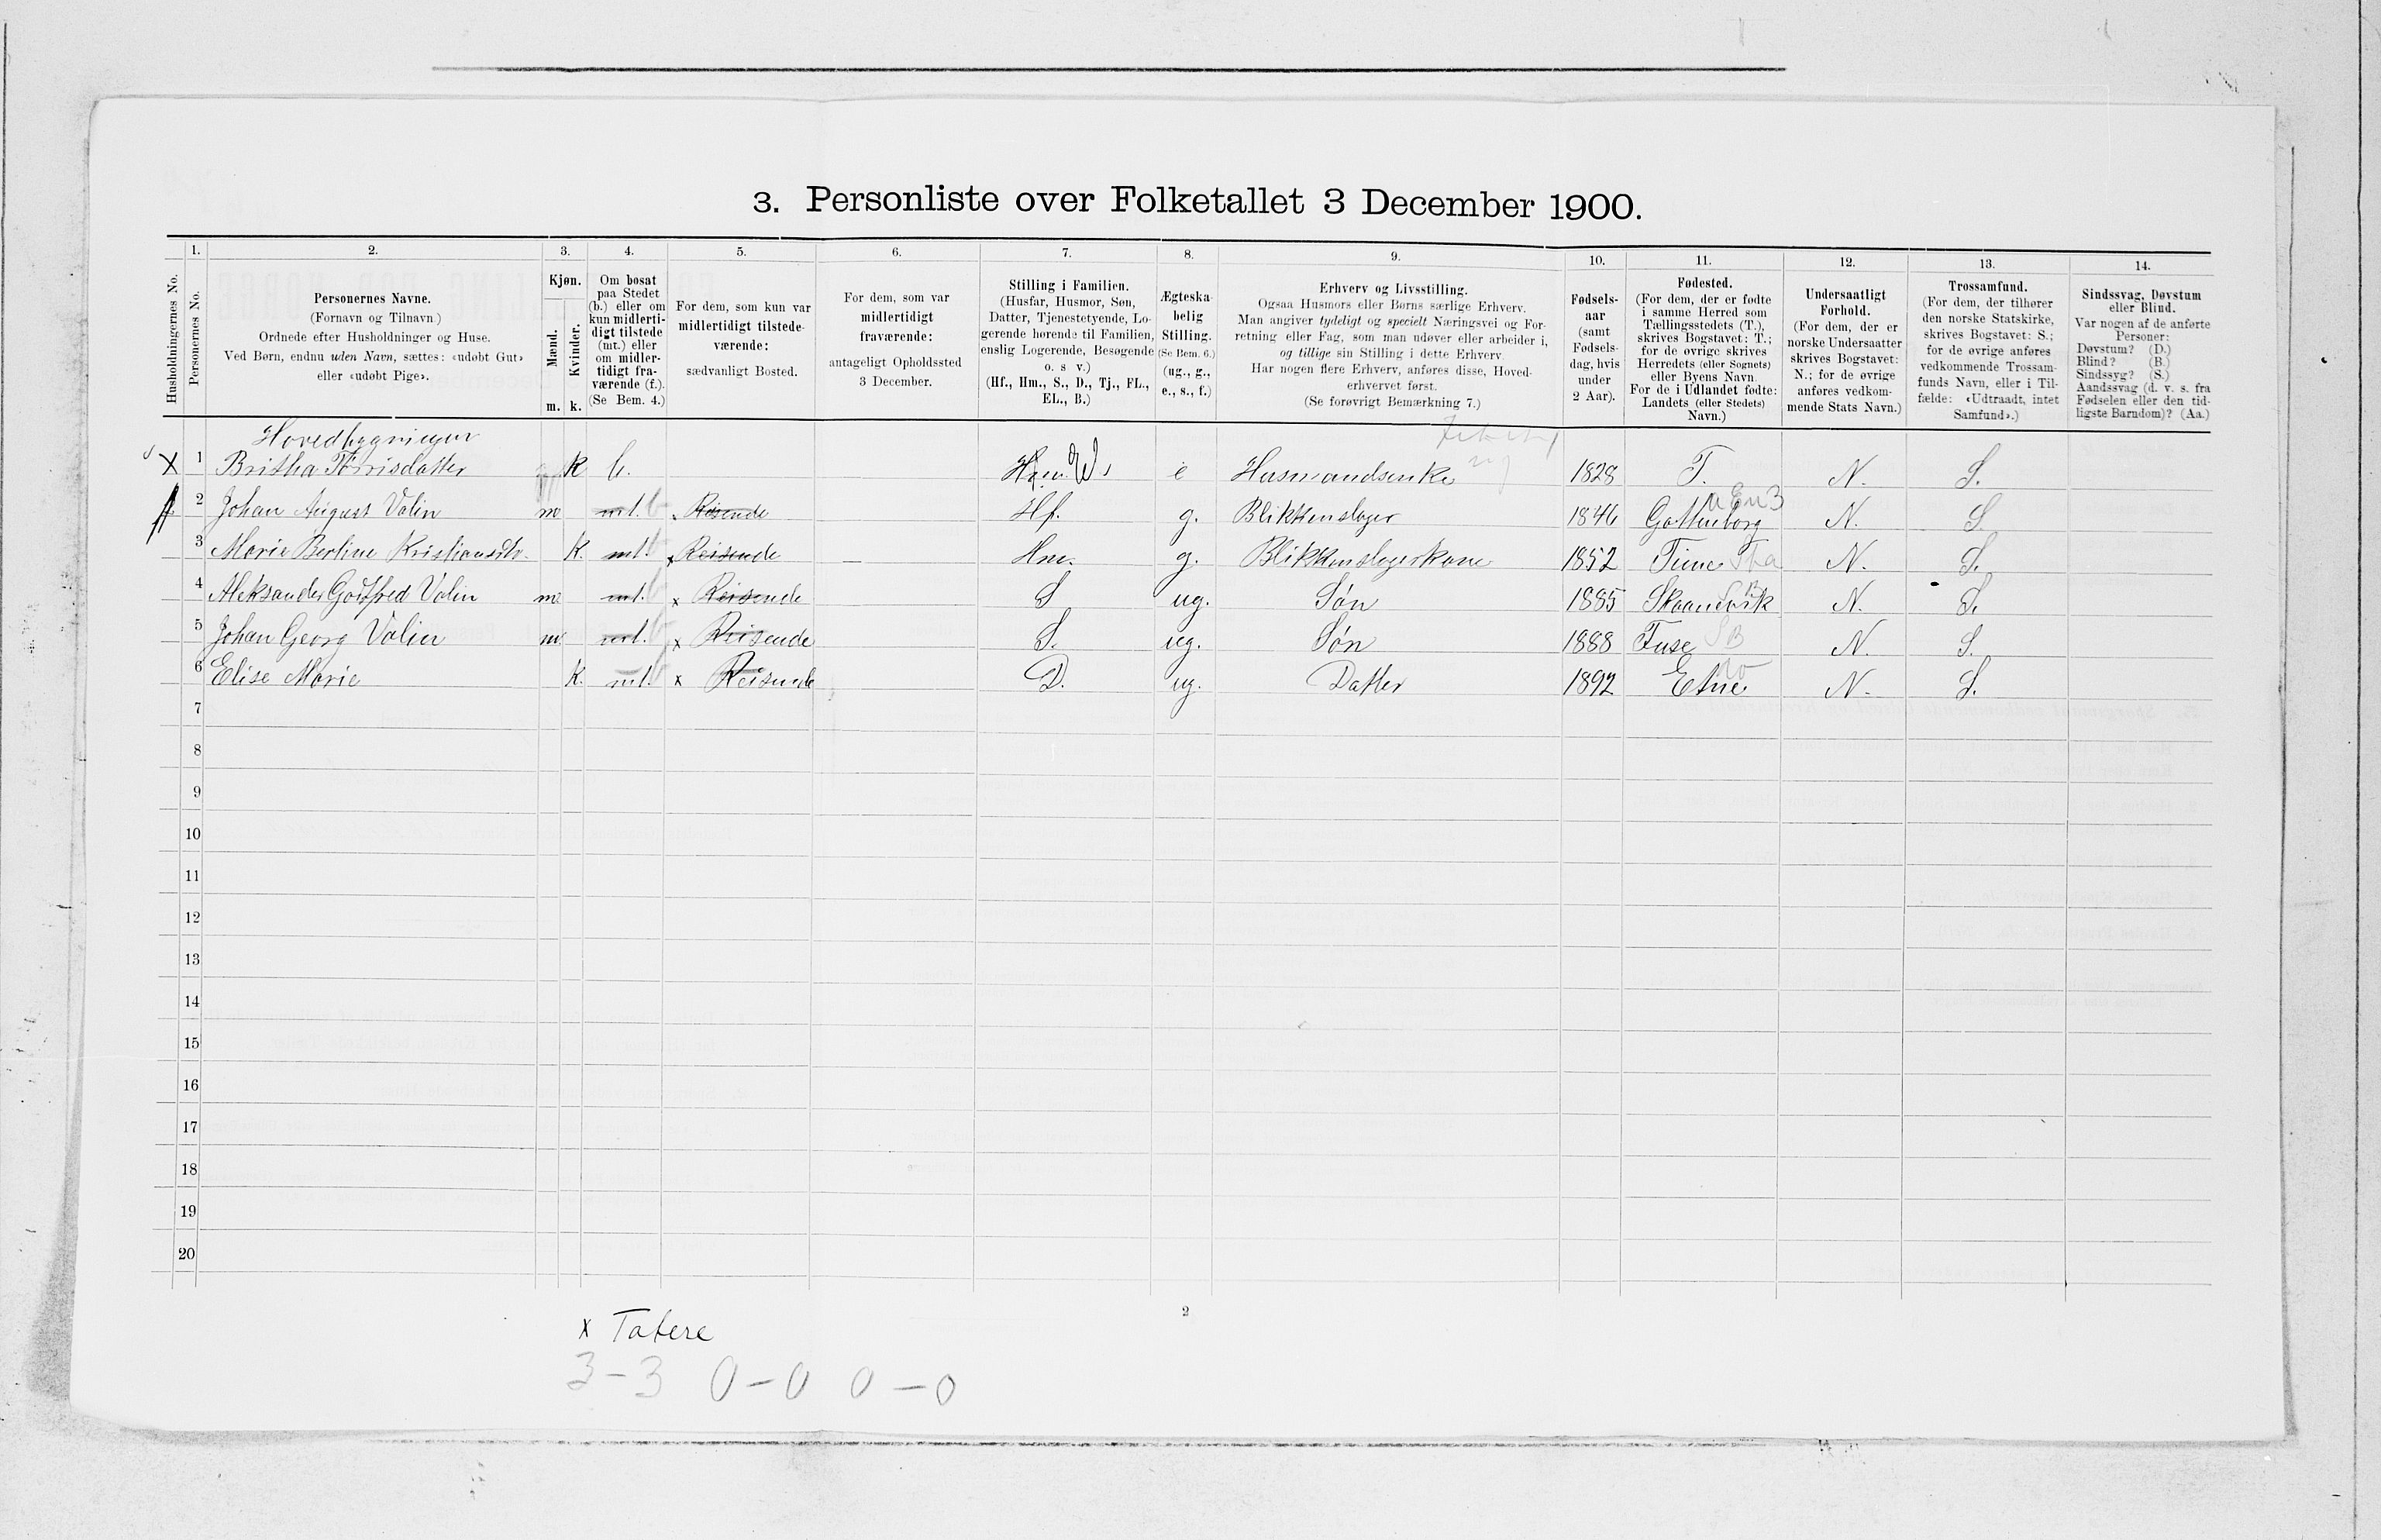 3. Personliste over Folketallet 3 December 1900.
1. 2. 3. 4. 5. 6. 7. 8. 9. 10. 11. 12. 13. 14.
Husholdningernes No.
Personernes No.
Personernes Navne.
(Fornavn og Tilnavn)
Ordnede efter Husholdninger og Huse.
Ved Børn, endnu uden Navn, sættes: «udøbt Gut»
eller «udøbt Pige».
Kjøn.
Mænd.
Kvinder.
m. k.
Om bosat
paa Stedet
(b.) eller om
kun midlerti-
digt tilstede
(mt.) eller
om midler-
tidigt fra-
værende (f.).
(Se Bem. 4.)
For dem, som kun var
midlertidigt tilstede-
værende:
sædvanligt Bosted.
For dem, som var
midlertidigt
fraværende:
antageligt Opholdssted
3 December.
Stilling i Familien.
(Husfar, Husmor, Søn,
Datter, Tjenestetyende, Lo-
gerende hørende til Familien,
enslig Logerende, Besøgende
o. s v.)
(Hf., Hm., S., D., Tj., FL.,
EL., B.)
Ægteska-
belig
Stilling.
(Se Bem. 6.)
(ug., g.,
e., s., f.)
Erhverv og Livsstilling.
Ogsaa Husmors eller Børns særlige Erhverv.
Man angiver tydeligt og specielt Næringsvei og For-
retning eller Fag, som man udøver eller arbeider i,
og tillige sin Stilling i dette Erhverv.
Har nogen flere Erhverv, anføres disse, Hoved-
erhvervet først.
(Se forøvrigt Bemærkning 7.)
Fødsels-
aar
(samt
Fødsels-
dag, hvis
under
2 Aar).
Fødested.
(For dem, der er fødte
i samme Herred som
Tællingsstedets (T.),
skrives Bogstavet: T.;
for de øvrige skrives
Herredets (eller Sognets)
eller Byens Navn.
For de i Udlandet fødte:
Landets (eller Stedets)
Navn.)
Undersaatligt
Forhold.
(For dem, der er
norske Undersaatter
skrives Bogstavet:
N.; for de øvrige
anføres vedkom-
mende Stats Navn.)
Trossamfund.
(For dem, der tilhører
den norske Statskirke,
skrives Bogstavet: S.;
for de øvrige anføres
vedkommende Trossam-
funds Navn, eller i Til-
fælde: «Udtraadt, intet
Samfund».)
Sindssvag, Døvstum
eller Blind.
Var nogen af de anførte
Personer:
Døvstum? (D.)
Blind? (B.)
Sindssyg? (S.)
Aandssvag (d. v. s. fra
Fødselen eller den tid-
ligste Barndom)? (Aa.)
Hovedbygningen
X 1 Britha Torrisdatter K b. Hm. e Husmandsenke 1828 T. N. S.
2 Johan August Valin m mt. b x Reisende Hf. g. Blikkenslager 1846 Gottenborg N. S
3 Marie Berline Kristiansdtr. K. mt. b x Reisende Hm. g. Blikkenslagerkone 1852 Time N. S.
4 Aleksander Gotfred Valin m mt. b x Reisende S ug. Søn 1885 Skaanevik N. S.
5 Johan Georg Valin m mt. b x Reisende S. ug. Søn 1888 Fuse SB N. S.
6 Elise Marie K. mt. b x Reisende D. ug. Datter 1892 Etne N. S.
7
8
9
10
11
12
13
14
15
16
17
18
19
20
2
x Tatere
3-3 0-0 0-0